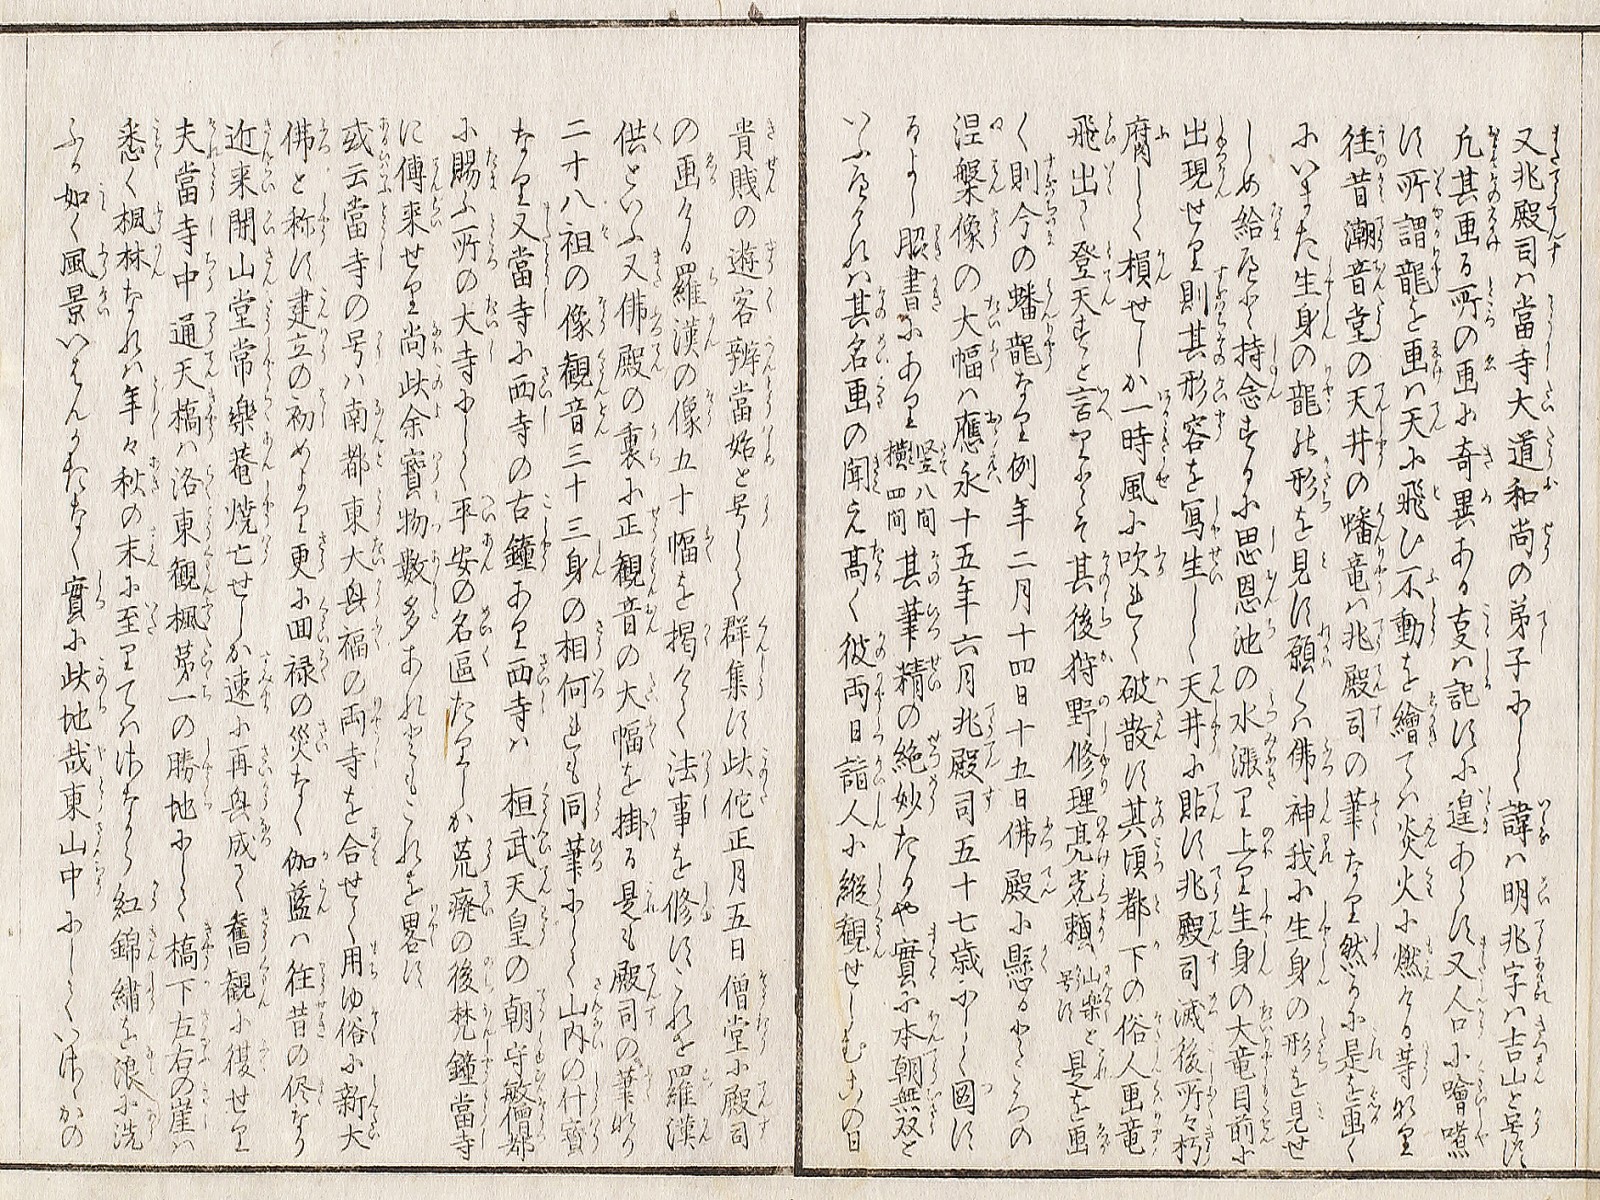 又兆殿司ハ當寺大道和尚の弟子にして諱ハ明兆字ハ吉山と号す
凡其画る所の画に奇異ある支ハ記すに遑あらす又人口に噲炙
す所謂龍を画ハ天に飛ひ不動を繪てハ炎火に燃ける等なり
徃昔潮音堂の天井の蟠竜ハ兆殿司の筆なり然るに是を画く
にいまた生身の龍の形を見す願くハ佛神我に生身の形を見せ
しめ給へと持念するに思恩池の水漲り上り生身の大竜目前に
出現せり則其形容を寫生して天井に貼す兆殿司滅後所々朽
腐して損せしか一時風に吹れて破散す其頃都下の俗人画竜
飛出て登天すと言りとそ其後狩野修理亮光頼仙楽と号す是を画
く則今の蟠龍なり例年二月十四日十五日佛殿に懸るところの
涅槃像の大幅ハ應永十五年六月兆殿司五十七歳にして図す
るよし昭書にあり竪八間横四間其筆精の絶妙たるや實に本朝無双と
いふへけれハ其名画の聞え高く彼両日詣人に縦観せしむこの日
貴賎の遊客辨當始と号して群集す此佗正月五日僧堂に殿司
の画ける羅漢の像五十幅を掲けて法事を修すこれを羅漢
供といふ又佛殿の裏に正観音の大幅を掛る是も殿司の筆なり
二十八祖の像観音三十三身の相何れも同筆にして山内の什寳
なり又當寺に西寺の古鐘あり西寺ハ 桓武天皇の朝守敏僧都
に賜ふ所の大寺にして平安の名區たりしか荒廢の後梵鐘當寺
に傳来せり尚此余寳物数多あれともこれを畧す
或云當寺の号ハ南都東大興福の両寺を合せて用ゆ俗に新大
佛と称す建立の初めより更に回禄の災なく伽藍ハ徃昔の侭なり
近来開山堂常樂菴焼亡せしか速に再興成て舊観に復せり
夫當寺中通天橋ハ洛東観楓第一の勝地にして橋下左右の崖ハ
悉く楓林なれハ年々秋の末に至りてハさなから紅錦繍を浪に洗
ふか如く風景いはんかたなく實に此地哉東山中にしていさゝかの